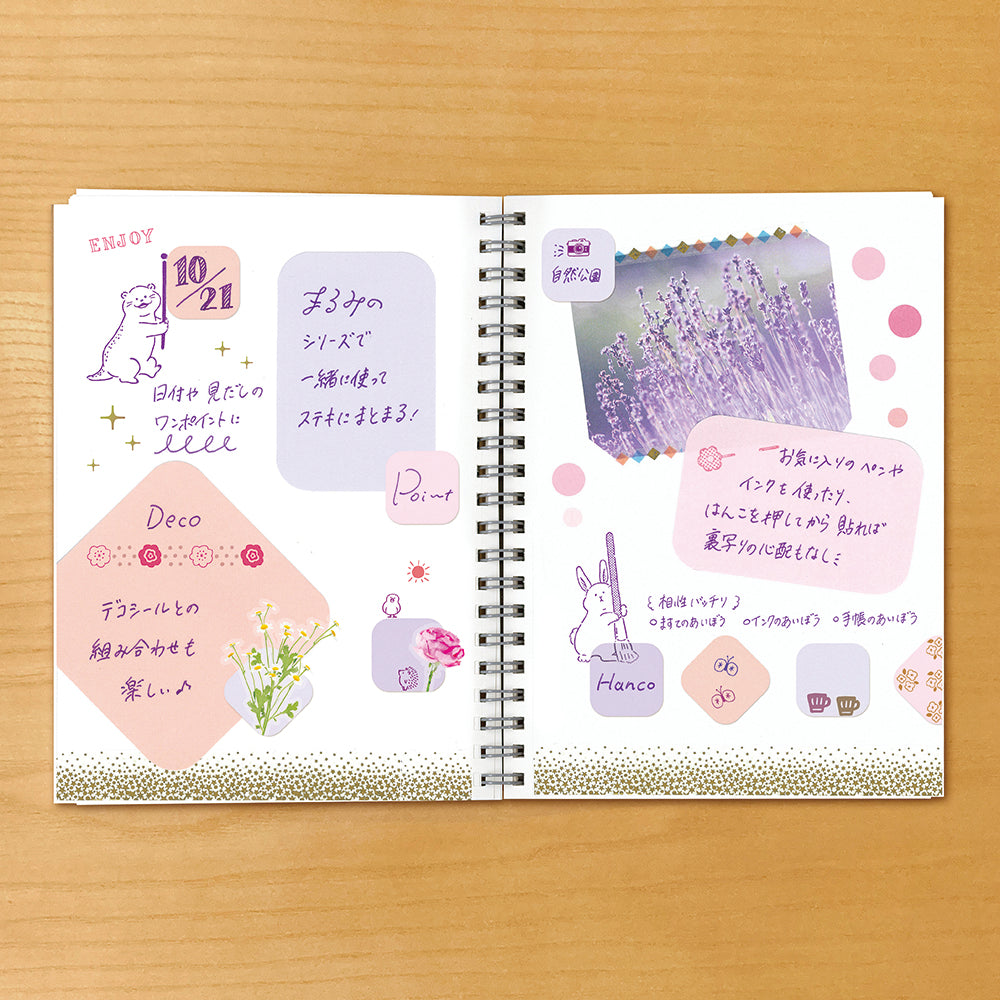 ENJOY
10/21
日付や見だしの
ワンポイントに
まるみの
シリーズで
一緒に使って
ステキにまとまる!
Point
Deco
デコシールとの
組み合わせも
楽しい♪
自然公園
お気に入りのペンや
インクを使ったり、
はんこを押してから貼れば
裏写りの心配もなし
{相性バッチリ}
○まてのあいぼう ○インクのあいぼう ○手帳のあいぼう
Hanco